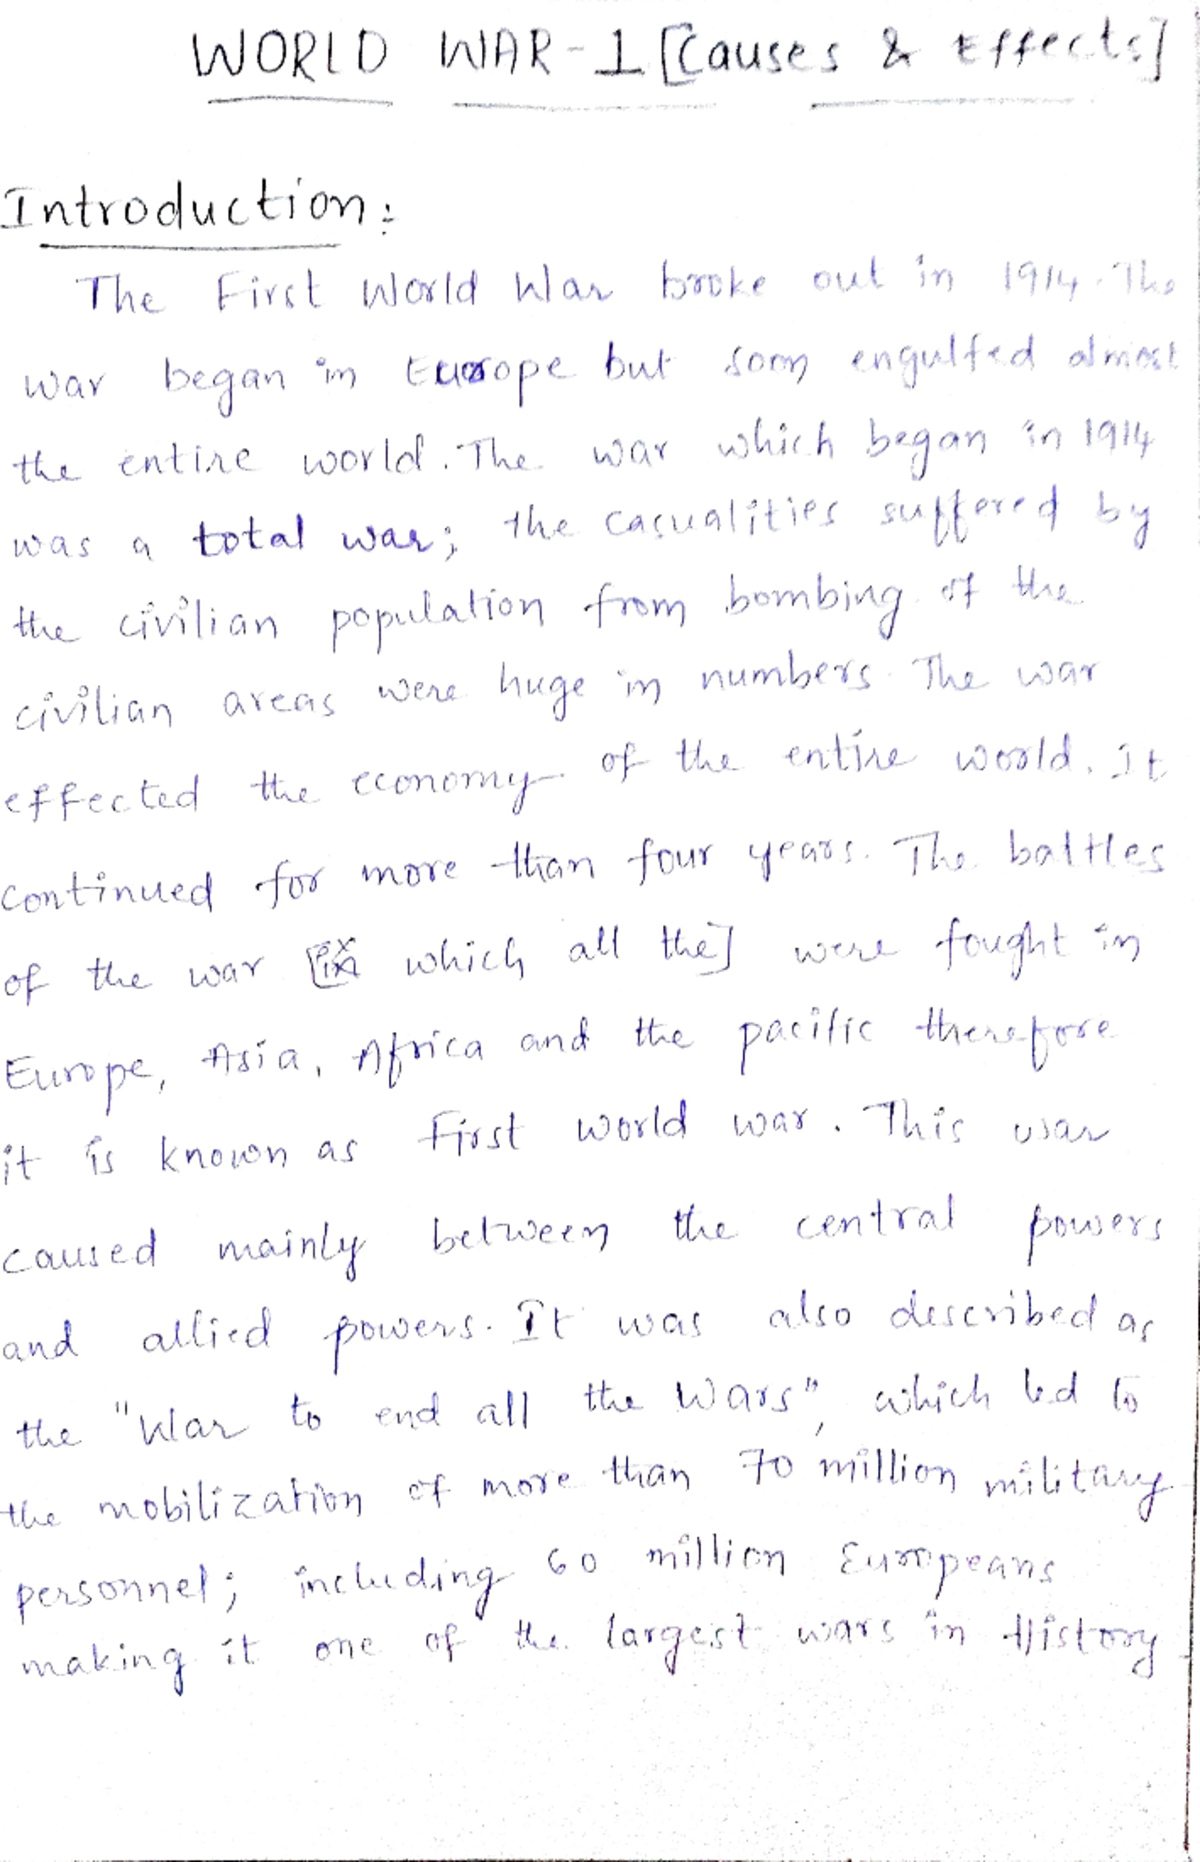 WORLD WAR-1 [Causes & Effects]
Introduction:
The First World War broke out in 1914. The
war began in Europe but soon engulfed almost
the entire world. The war which began in 1914
was a total war; the casualities suffered by
the civilian population from bombing of the
civilian areas were huge in numbers. The war
effected the economy of the entire world. It
continued for more than four years. The battles
of the war [in which all the] were fought in
Europe, Asia, Africa and the pacific therefore
it is known as First world war. This war
caused mainly between the central powers
and allied powers. It was also described as
the "War to end all the Wars", which led to
the mobilization of more than 70 million military
personnel; including 60 million Europeans
making it one of the largest wars in History.